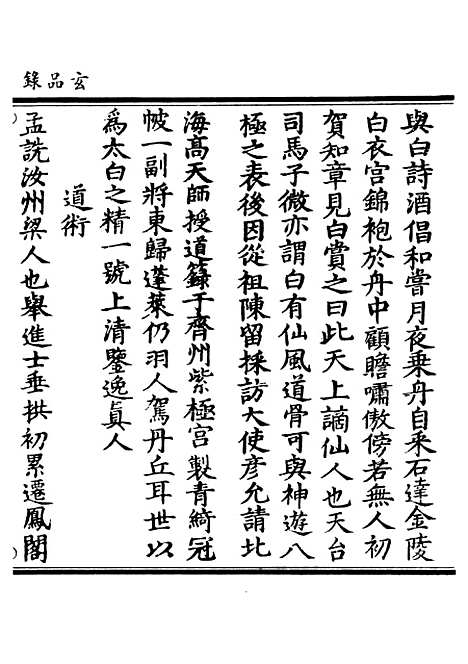 玄品錄
與白詩酒倡和嘗月夜乗舟自采石達金陵
白衣宫錦袍於舟中顧瞻嘯傲傍若無人初
賀知章見白賞之曰此天上謫仙人也天台
司馬子微亦謂白有仙風道骨可與神遊八
極之表後因從祖陳留採訪大使彦允請北
海髙天師授道籙于齊州紫極宫製青綺冠
帔一副將東歸蓬萊仍羽人駕丹丘耳世以
爲太白之精一號上清鑒逸眞人
道術
孟詵汝州梁人也舉進士垂拱初累遷鳳閣